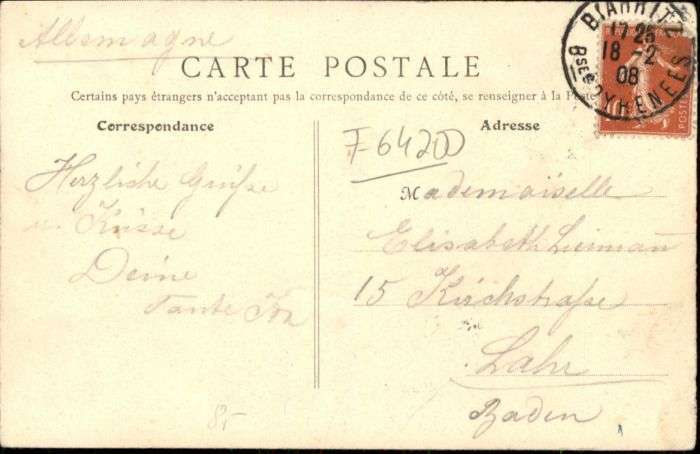 Allemagne
BIARRITZ
17 25
18 -2
08
Bses PYRENEES
POSTES
CARTE POSTALE
Certains pays étrangers n'acceptant pas la correspondance de ce côté, se renseigner à la Poste
Correspondance
Adresse
F-64200
Herzliche Grüße
u. Küsse
Deine
Tante
Mademoiselle
Elisabeth
15 Kirchstraße
Lahr
Baden
8,-